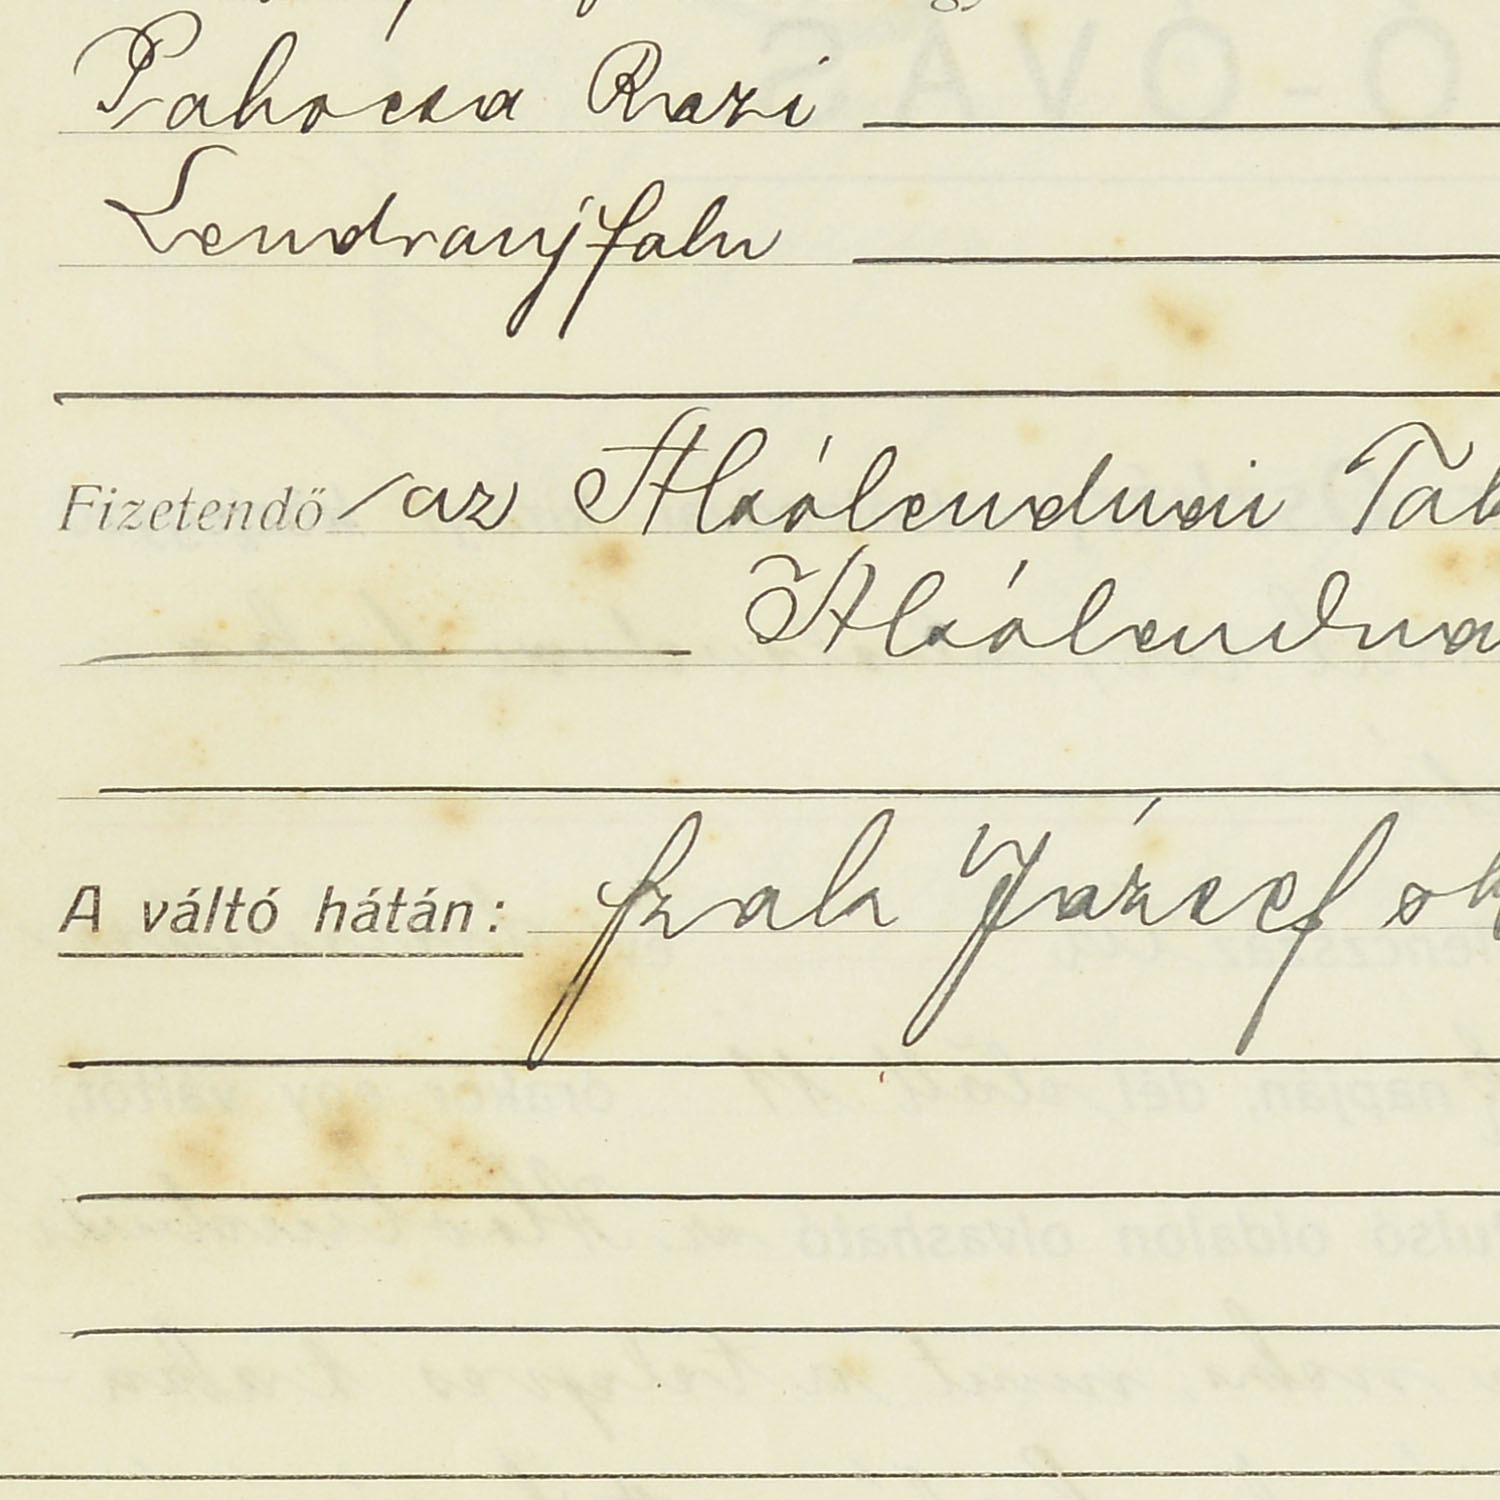 Pahocsa Rozi
Lendvaujfalu
Fizetendő az Alsólendvai Tak
Alsólendva
A váltó hátán: Szak József sk